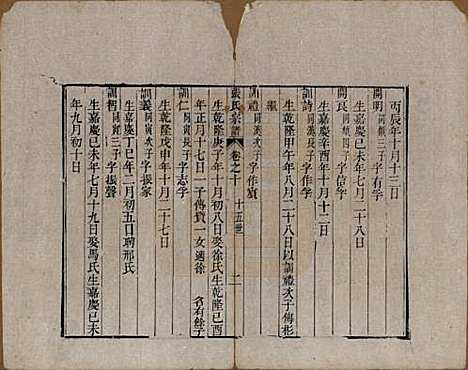 丙辰年十月十三日
開明 同 三子字有孚
生嘉慶己未年二月二十八日
開艮 同 四子字信孚
生嘉慶辛酉年十月十二日
訓詩 同 長子字作孚
生乾隆甲午年八月二十八日以訓禮次子傳彬
繼
訓禮 同 次子字作賓
張氏宗譜 卷之十 十五世 二
生乾隆庚子年十月初八日娶徐氏生乾隆己酉
年正月十七日一子傳賁一女適徐 名有餘子
訓仁 同寅長子字志孚
生乾隆戊申年十月二十七日
訓義 同寅次子字振家
生嘉慶丁巳年二月初五日聘邢氏
訓智 同寅三子字振聲
生嘉慶己未年七月十九日娶馬氏生嘉慶己未
年九月初十日